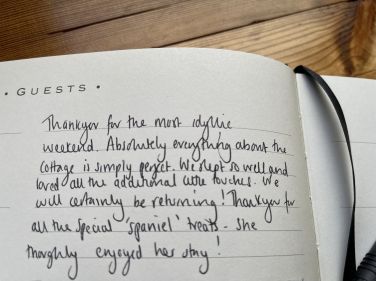 • GUESTS •
Thankyou for the most idyllic
weekend. Absolutely everything about the
cottage is simply perfect. We slept so well and
loved all the additional little touches. We
will certainly be returning! Thankyou for
all the special 'spaniel' treats - she
thoroghly enjoyed her stay!